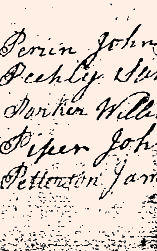 Perrin John
Peehly Sa
Parker Willi
Piper Joh
Pettenton Jam